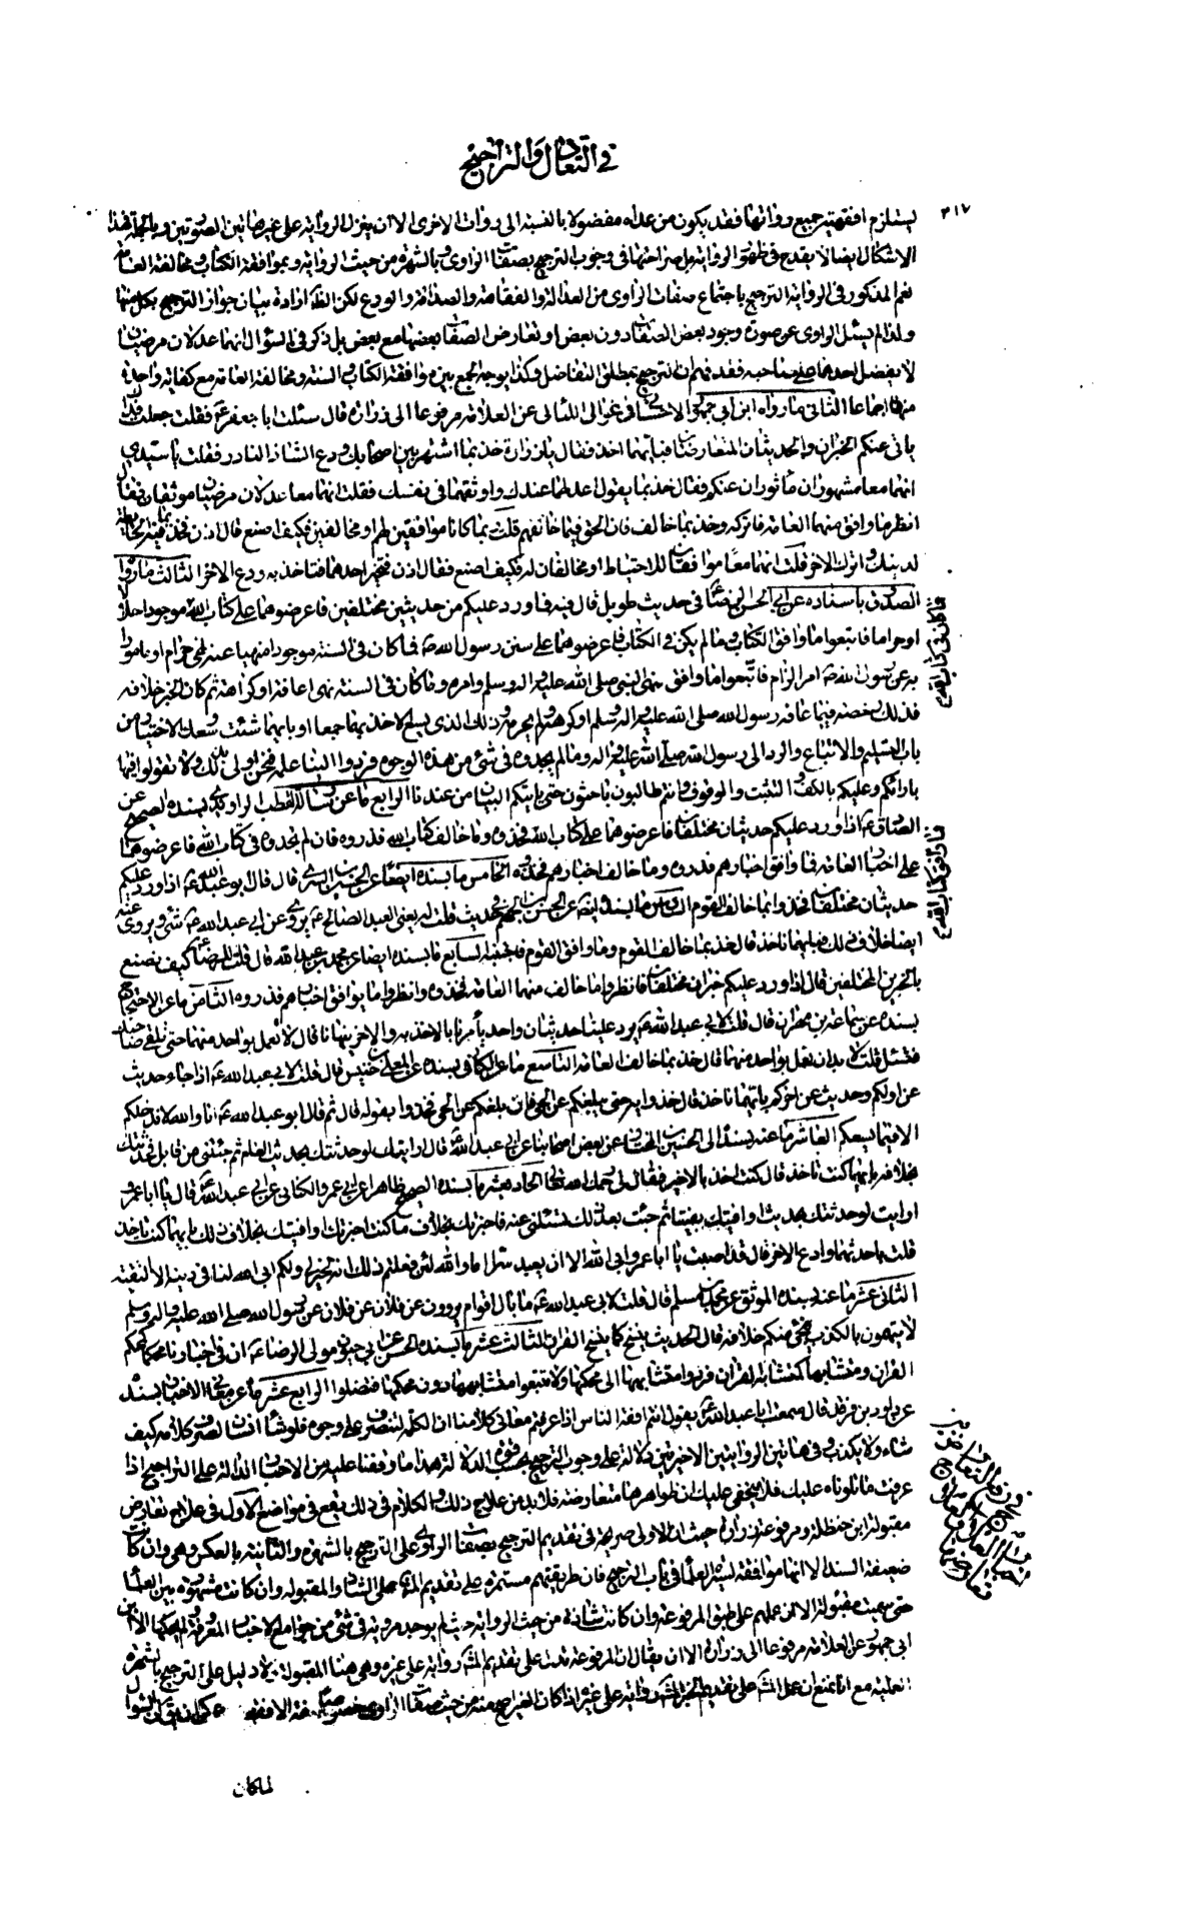 في التعادل والتراجيح
٣١٧
يستلزم افقهية جميع رواتها فقد يكون من عداه مفضولا بالنسبة الى رواة الاخرى الا ان ينزل الرواية على غير هاتين الصورتين وبالجملة فهذا
الاشكال ايضا لا يقدح في ظهور الرواية بل صراحتها في وجوب الترجيح بصفات الراوى وبالشهرة من حيث الرواية وبموافقة الكتاب ومخالفة العامة
نعم المذكور في الرواية الترجيح باجتماع صفات الراوى من العدالة والفقاهة والصداقة والورع لكن الظ ارادة بيان جواز الترجيح بكل منها
ولذا لم يسئل الراوى عن صورة وجود بعض الصفات دون بعض او تعارض الصفات بعضها مع بعض بل ذكر في السؤال انهما عدلان مرضيان
لا يفضل احدهما على صاحبه فقد فهم ان الترجيح بمطلق التفاضل وكذا يوجه الجمع بين موافقة الكتاب والسنة ومخالفة العامة مع كفاية واحدة
منها اجماعا الثاني ما رواه ابن ابي جمهور الاحسائي في غوالي اللئالي عن العلامة مرفوعا الى زرارة قال سئلت ابا جعفر ع فقلت جعلت فداك
ياتي عنكم الخبران والحديثان المتعارضان فبايهما اخذ فقال يا زرارة خذ بما اشتهر بين اصحابك ودع الشاذ النادر فقلت يا سيدي
انهما معا مشهوران ماثوران عنكم فقال خذ بما يقول اعدلهما عندك واوثقهما في نفسك فقلت انهما معا عدلان مرضيان موثقان فقال
انظر ما وافق منهما العامة فاتركه وخذ بما خالف فان الحق فيما خالفهم قلت ربما كانا موافقين لهم او مخالفين فكيف اصنع قال اذن فخذ بما فيه الحائطة
لدينك واترك الاخر قلت انهما معا موافقان للاحتياط او مخالفان له فكيف اصنع فقال اذن فتخير احدهما فتاخذ به ودع الاخر الثالث ما رواه
الصدوق باسناده عن ابي الحسن الرضا ع في حديث طويل قال فيه فما ورد عليكم من حديثين مختلفين فاعرضوهما على كتاب الله فما كان في كتاب الله موجودا حلالا
او حراما فاتبعوا ما وافق الكتاب وما لم يكن في الكتاب فاعرضوهما على سنن رسول الله ص فما كان في السنة موجودا منهيا عنه نهى حرام او مامورا
به عن رسول الله ص امر الزام فاتبعوا ما وافق نهى النبي صلى الله عليه واله وسلم وامره وما كان في السنة نهى اعافة او كراهة ثم كان الخبر خلافه
فذلك رخصة فيما عافه رسول الله صلى الله عليه واله وسلم او كرهه ولم يحرمه وذلك الذي يسع الاخذ بهما جميعا او بايهما شئت وسعك الاختيار من
باب التسليم والاتباع والرد الى رسول الله صلى الله عليه واله وما لم تجدوه في شئ من هذه الوجوه فردوا الينا علمه فنحن اولى بذلك ولا تقولوا فيه
بارائكم وعليكم بالكف والتثبت والوقوف وانتم طالبون باحثون حتى ياتيكم البيان من عندنا الرابع ما عن رسالة القطب الراوندي بسنده الصحيح عن
الصادق ع اذا ورد عليكم حديثان مختلفان فاعرضوهما على كتاب الله فما وافق كتاب الله فخذوه وما خالف كتاب الله فذروه فان لم تجدوه في كتاب الله فاعرضوهما
على اخبار العامة فما وافق اخبارهم فذروه وما خالف اخبارهم فخذوه الخامس ما بسنده ايضا عن الحسين بن السري قال قال ابو عبد الله ع اذا ورد عليكم
حديثان مختلفان فخذوا بما خالف القوم السادس ما بسنده ايضا عن الحسن بن الجهم في حديث قلت له يعني العبد الصالح ع يروى عن ابي عبد الله ع شئ ويروى عنه
ايضا خلاف ذلك فبايهما ناخذ قال خذ بما خالف القوم وما وافق القوم فاجتنبه السابع ما بسنده ايضا عن محمد بن عبد الله قال قلت للرضا ع كيف نصنع
بالخبرين المختلفين قال اذا ورد عليكم خبران مختلفان فانظروا ما خالف منهما العامة فخذوه وانظروا ما يوافق اخبارهم فذروه الثامن ما عن الاحتجاج
بسنده عن سماعة بن مهران قال قلت لابي عبد الله ع يرد علينا حديثان واحد يأمرنا بالاخذ به والاخر ينهانا قال لا تعمل بواحد منهما حتى تلقى صاحبك
فتسئل قلت لا بد ان نعمل بواحد منهما قال خذ بما خالف العامة التاسع ما عن الكافي بسنده عن المعلى بن خنيس قال قلت لابي عبد الله ع اذا جاء حديث
عن اولكم وحديث عن اخركم بايهما ناخذ قال خذوا به حتى يبلغكم عن الحى فان بلغكم عن الحى فخذوا بقوله قال ثم قال ابو عبد الله ع انا والله لا ندخلكم
الا فيما يسعكم العاشر ما عنه بسنده الى الحسين بن المختار عن بعض اصحابنا عن ابي عبد الله ع قال ارايتك لو حدثتك بحديث العام ثم جئتني من قابل فحدثتك
بخلافه بايهما كنت تاخذ قال كنت اخذ بالاخير فقال لي رحمك الله تعالى الحادى عشر ما بسنده الصحيح ظاهرا عن ابي عمرو الكناني عن ابي عبد الله ع قال يا ابا عمرو
ارايت لو حدثتك بحديث او افتيتك بفتيا ثم جئت بعد ذلك تسئلني عنه فاخبرتك بخلاف ما كنت اخبرتك او افتيتك بخلاف ذلك بايهما كنت تاخذ
قلت باحدثهما وادع الاخر قال قد اصبت يا ابا عمرو ابى الله الا ان يعبد سرا اما والله لئن فعلتم ذلك انه لخير لي ولكم ابى الله لنا في دينه الا التقية
الثاني عشر ما عنه بسنده الموثق عن محمد بن مسلم قال قلت لابي عبد الله ع ما بال اقوام يروون عن فلان عن فلان عن رسول الله صلى الله عليه واله وسلم
لا يتهمون بالكذب فيجئ منكم خلافه قال الحديث ينسخ كما ينسخ القران الثالث عشر ما بسنده الحسن عن ابي حيون مولى الرضا ع ان في اخبارنا محكما كمحكم
القران ومتشابها كمتشابه القران فردوا متشابهها الى محكمها ولا تتبعوا متشابهها دون محكمها فتضلوا الرابع عشر ما عن معاني الاخبار بسنده
عن داود بن فرقد قال سمعت ابا عبد الله ع يقول انتم افقه الناس اذا عرفتم معاني كلامنا ان الكلمة لتنصرف على وجوه فلو شاء انسان لصرف كلامه كيف
شاء ولا يكذب وفي هاتين الروايتين الاخيرتين دلالة على وجوب الترجيح بحسب قوة الدلالة هذا ما وقفنا عليه من الاخبار الدالة على التراجيح اذا
عرفت ما تلوناه عليك فلا يخفى عليك ان ظواهرها متعارضة فلا بد من علاج ذلك والكلام في ذلك يقع في مواضع الاول في علاج تعارض
مقبولة ابن حنظلة ومرفوعة زرارة حيث ان الاولى صريحة في تقديم الترجيح بصفات الراوى على الترجيح بالشهرة والثانية بالعكس وهي وان كانت
ضعيفة السند الا انها موافقة لسيرة العلماء في باب الترجيح فان طريقتهم مستمرة على تقديم المش على الشاذ والمقبولة وان كانت مشهورة بين العلماء
حتى سميت مقبولة الا ان عملهم على طبق المرفوعة وان كانت شاذة من حيث الرواية حيث لم يوجد مروية في شئ من جوامع الاخبار المعروفة ولم يحكها الا ابن
ابي جمهور عن العلامة مرفوعا الى زرارة الا ان يقال ان المرفوعة تدل على تقديم المش رواية على غيره وهي هنا المقبولة ولا دليل على الترجيح بالشهرة
العملية مع انا نمنع ان عمل المش على تقديم الخبر المش رواية على غيره اذا كان الغير اصح منه من حيث صفات الراوى خصوصا صفة الافقهية ويمكن ان يقال ان السؤال
لما كان
فما كان في كتاب الله
فما وافق كتاب الله